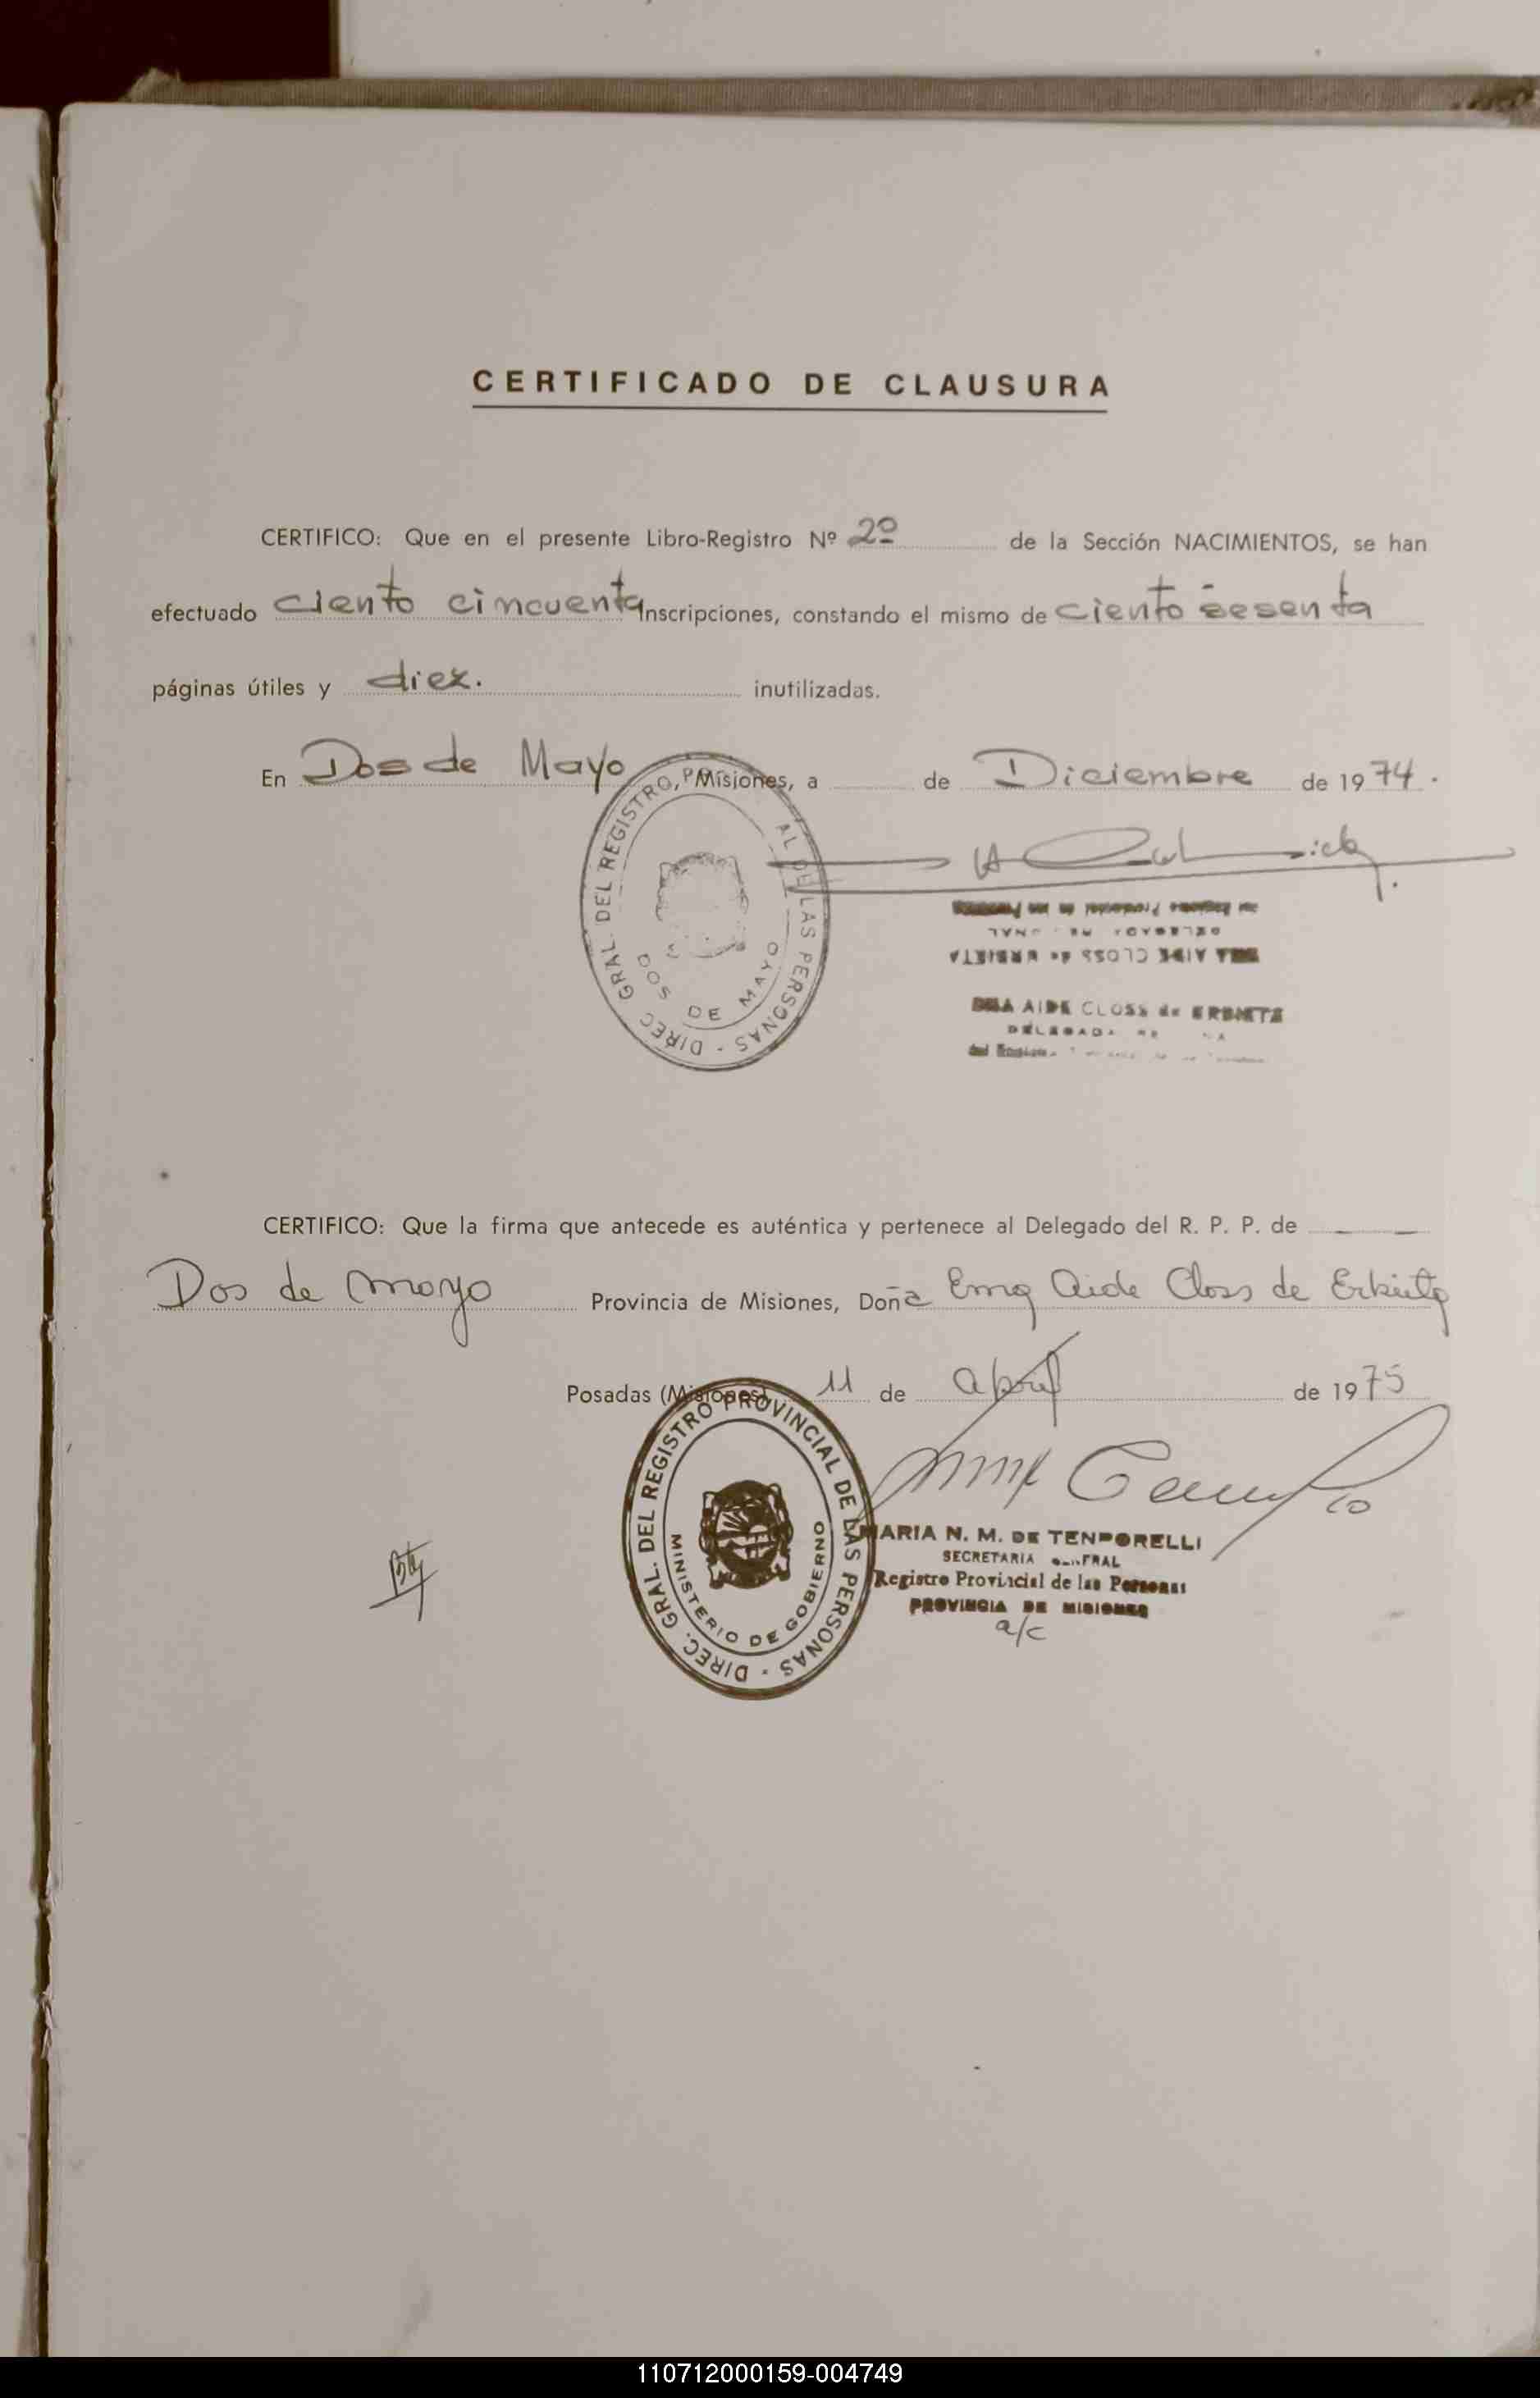 CERTIFICADO DE CLAUSURA
CERTIFICO: Que en el presente Libro-Registro Nº 2º de la Sección NACIMIENTOS, se han
efectuado ciento cincuenta inscripciones, constando el mismo de ciento sesenta
páginas útiles y diez. inutilizadas.
En Dos de Mayo Misiones, a de Diciembre de 1974.
DIREC. GRAL. DEL REGISTRO PROVINCIAL DE LAS PERSONAS
DOS DE MAYO
EMA AIDE CLOSS de ERBIETA
EMA AIDE CLOSS de ERBIETA
DELEGADA
CERTIFICO: Que la firma que antecede es auténtica y pertenece al Delegado del R. P. P. de
Dos de Mayo Provincia de Misiones, Doña Ema Aide Closs de Erbieta
Posadas (Misiones) 11 de abril de 1975
DIREC. GRAL. DEL REGISTRO PROVINCIAL DE LAS PERSONAS
MINISTERIO DE GOBIERNO
MARIA N. M. DE TENPORELLI
SECRETARIA GENERAL
Registro Provincial de las Personas
PROVINCIA DE MISIONES
a/c
110712000159-004749